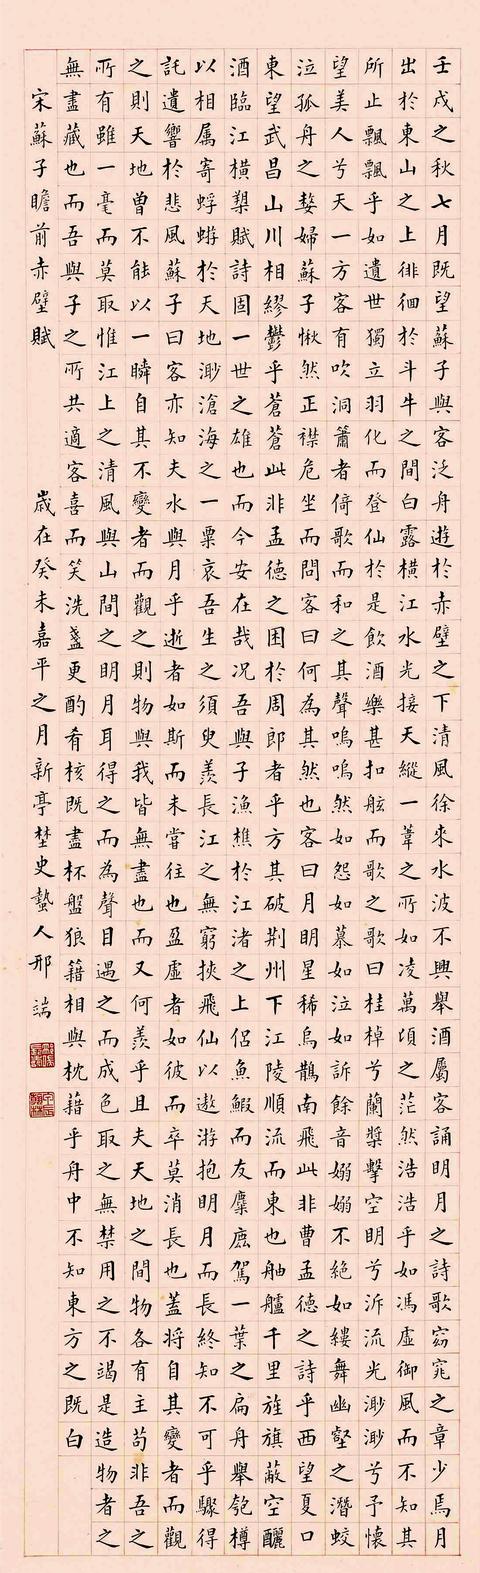 壬戌之秋七月既望蘇子與客泛舟遊於赤壁之下清風徐來水波不興舉酒屬客誦明月之詩歌窈窕之章少焉月
出於東山之上徘徊於斗牛之間白露橫江水光接天縱一葦之所如凌萬頃之茫然浩浩乎如馮虛御風而不知其
所止飄飄乎如遺世獨立羽化而登仙於是飲酒樂甚扣舷而歌之歌曰桂棹兮蘭槳擊空明兮泝流光渺渺兮予懷
望美人兮天一方客有吹洞簫者倚歌而和之其聲嗚嗚然如怨如慕如泣如訴餘音嫋嫋不絕如縷舞幽壑之潛蛟
泣孤舟之嫠婦蘇子愀然正襟危坐而問客曰何為其然也客曰月明星稀烏鵲南飛此非曹孟德之詩乎西望夏口
東望武昌山川相繆鬱乎蒼蒼此非孟德之困於周郎者乎方其破荊州下江陵順流而東也舳艫千里旌旗蔽空釃
酒臨江橫槊賦詩固一世之雄也而今安在哉况吾與子漁樵於江渚之上侶魚鰕而友麋鹿駕一葉之扁舟舉匏樽
以相属寄蜉蝣於天地渺滄海之一粟哀吾生之須臾羨長江之無窮挾飛仙以遨游抱明月而長終知不可乎驟得
託遺響於悲風蘇子曰客亦知夫水與月乎逝者如斯而未嘗往也盈虛者如彼而卒莫消長也蓋將自其變者而觀
之則天地曾不能以一瞬自其不變者而觀之則物與我皆無盡也而又何羨乎且夫天地之間物各有主苟非吾之
所有雖一毫而莫取惟江上之清風與山間之明月耳得之而為聲目遇之而成色取之無禁用之不竭是造物者之
無盡藏也而吾與子之所共適客喜而笑洗盞更酌肴核既盡杯盤狼籍相與枕藉乎舟中不知東方之既白
宋蘇子瞻前赤壁賦
歲在癸未嘉平之月新亭埜史蟄人邢端